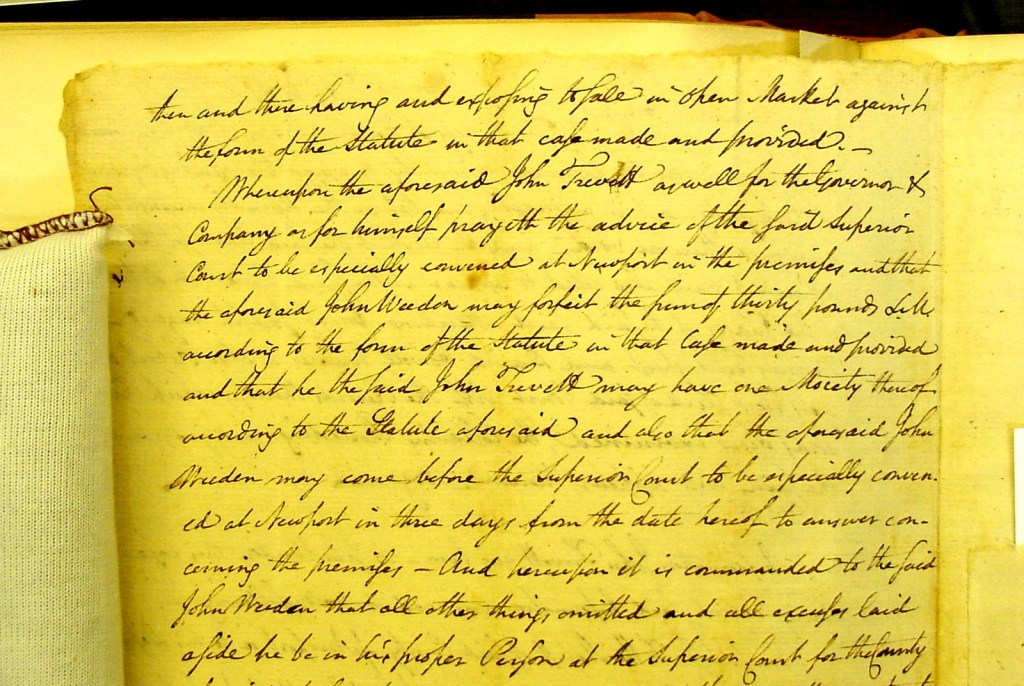 then and there having and exposing to sale in open Market against
the form of the Statute in that case made and provided. —
Whereupon the aforesaid John Trevett as well for the Governor &
Company as for himself prayeth the advice of the said Superior
Court to be especially convened at Newport in the premises and that
the aforesaid John Weeden may forfeit the sum of thirty pounds
according to the form of the Statute in that Case made and provided
and that he the said John Trevett may have one Moiety thereof
according to the Statute aforesaid and also that the aforesaid John
Weeden may come before the Superior Court to be especially conven-
ed at Newport in three days from the date hereof to answer con-
cerning the premises — And hereupon it is commanded to the said
John Weeden that all other things omitted and all excuses laid
aside he be in his proper Person at the Superior Court for the County